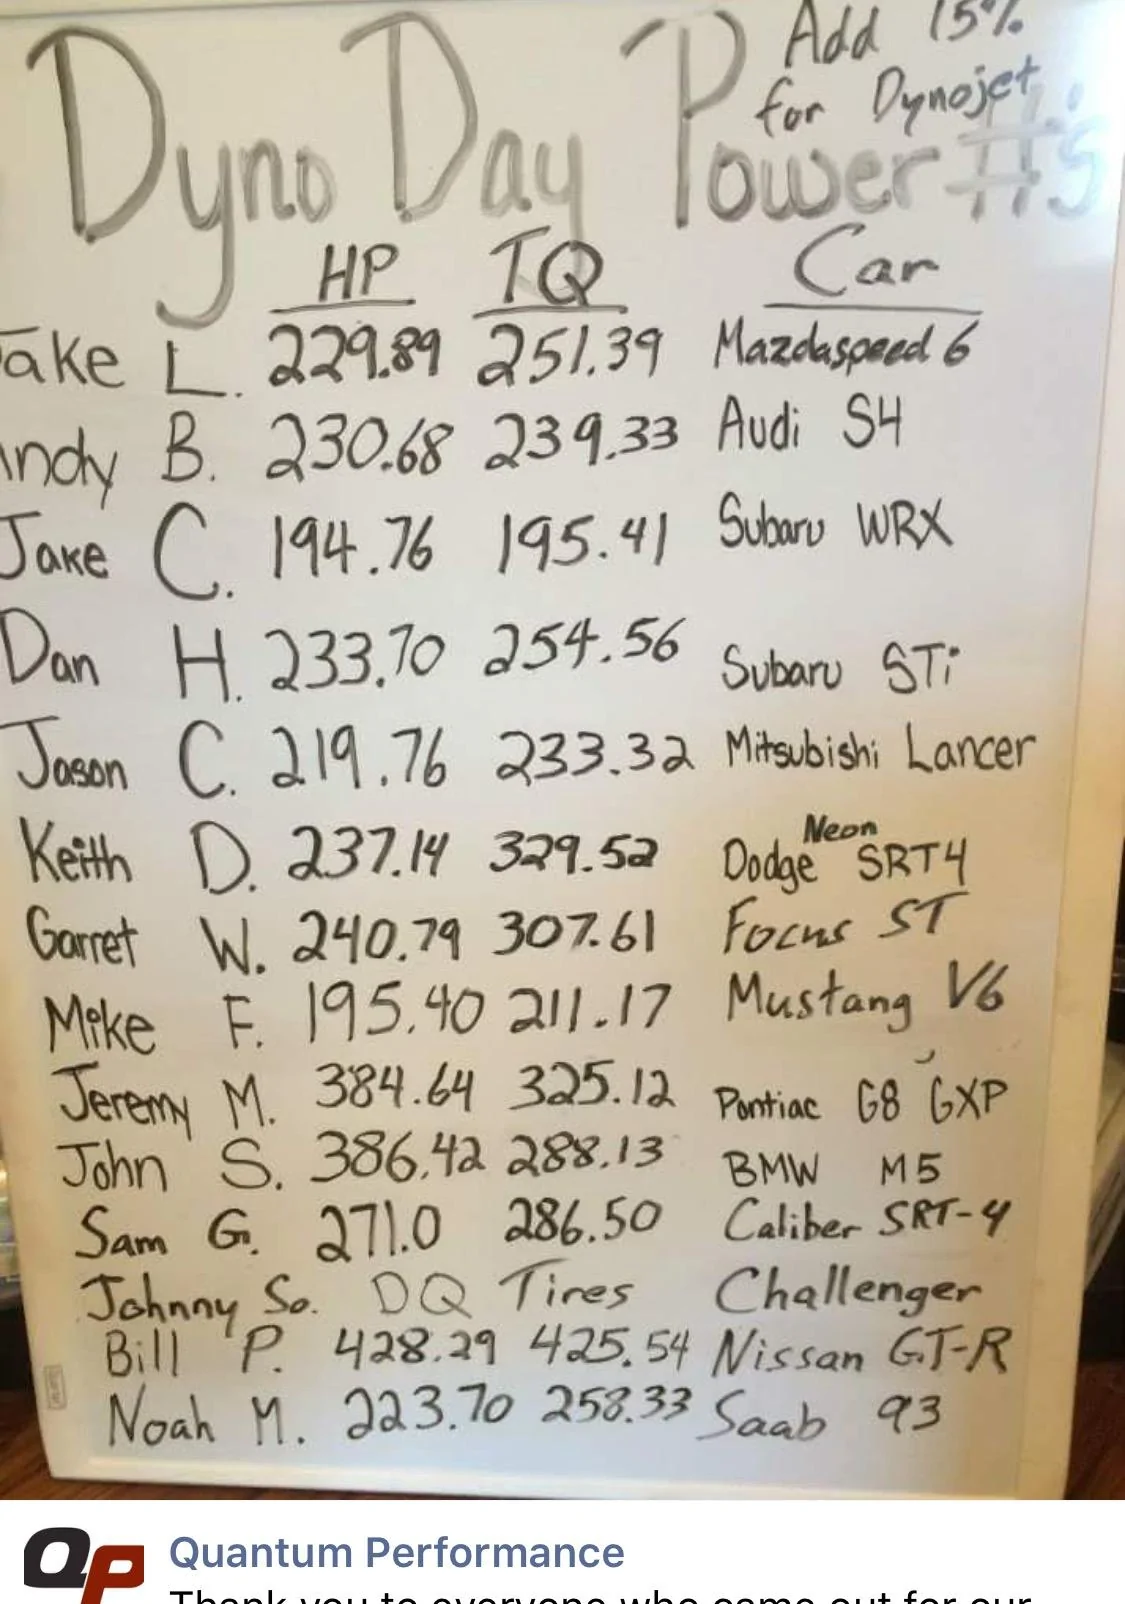 Add 15%
for Dynojet
Dyno Day Power #'s
HP TQ Car
ake L. 229.89 251.39 Mazdaspeed 6
ndy B. 230.68 239.33 Audi S4
Jake C. 194.76 195.41 Subaru WRX
Dan H. 233.70 254.56 Subaru STi
Jason C. 219.76 233.32 Mitsubishi Lancer
Keith D. 237.14 329.52 Dodge Neon SRT4
Garret W. 240.79 307.61 Focus ST
Mike F. 195.40 211.17 Mustang V6
Jeremy M. 384.64 325.12 Pontiac G8 GXP
John S. 386.42 288.13 BMW M5
Sam G. 271.0 286.50 Caliber SRT-4
Johnny So. DQ Tires Challenger
Bill P. 428.29 425.54 Nissan GT-R
Noah M. 223.70 258.33 Saab 93
QP Quantum Performance
Thank you to everyone who came out for our